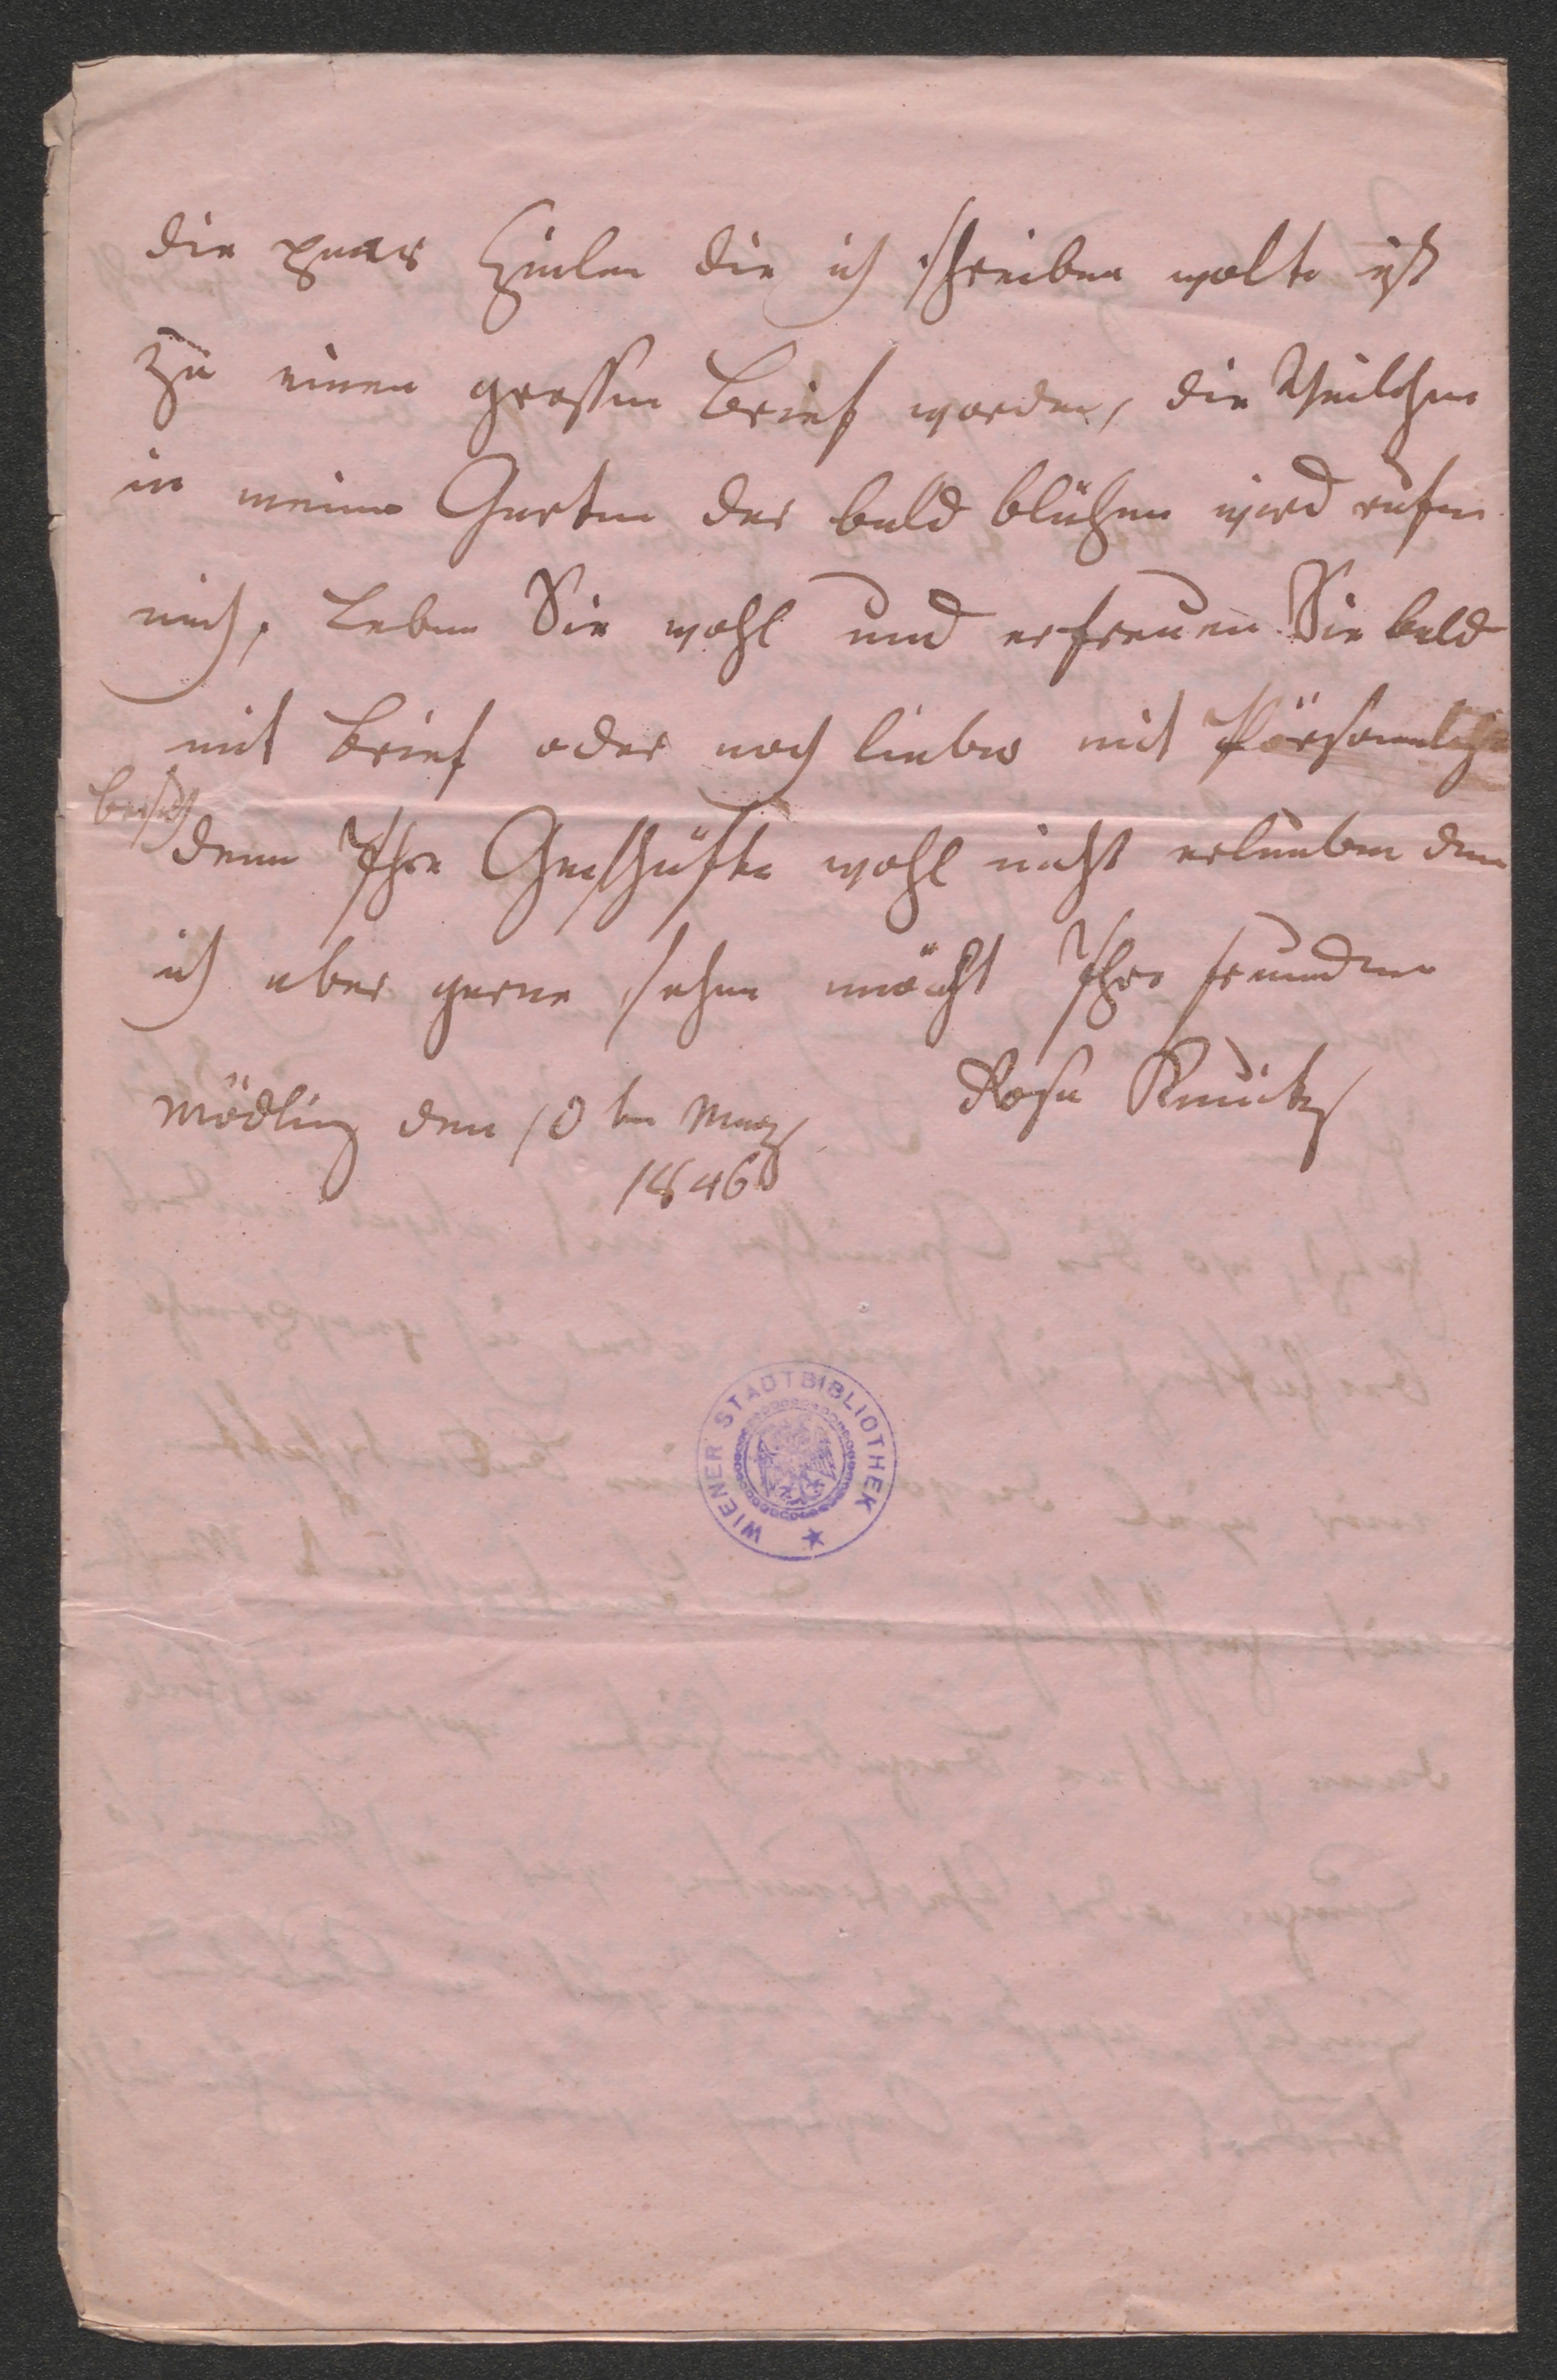 die paar Zeilen die ich schreiben wolte ist
zu einen grossen Brief worden, die Veilchen
in meine Garten der bald blühen wird rufen
mich, Leben Sie wohl und erfreuen Sie bald
mit Brief oder noch lieber mit Pörsonnliche
besuch
denn Ihre Geschäfte wohl nicht erlauben den
ich aber gerne sehen möcht Ihre freundin
Mödling den 10ten März Rosa
1846
WIENER STADTBIBLIOTHEK